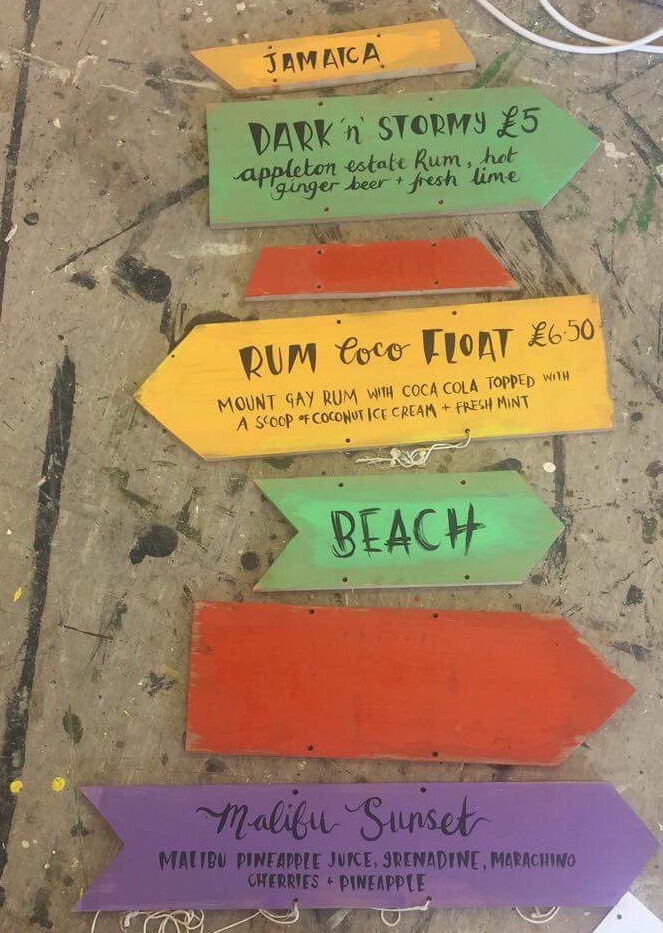 JAMAICA
DARK 'n' STORMY £5
appleton estate Rum, hot
ginger beer + fresh lime
RUM Coco FLOAT £6.50
MOUNT GAY RUM WITH COCA COLA TOPPED WITH
A SCOOP OF COCONUT ICE CREAM + FRESH MINT
BEACH
Malibu Sunset
MALIBU PINEAPPLE JUICE, GRENADINE, MARACHINO
CHERRIES + PINEAPPLE